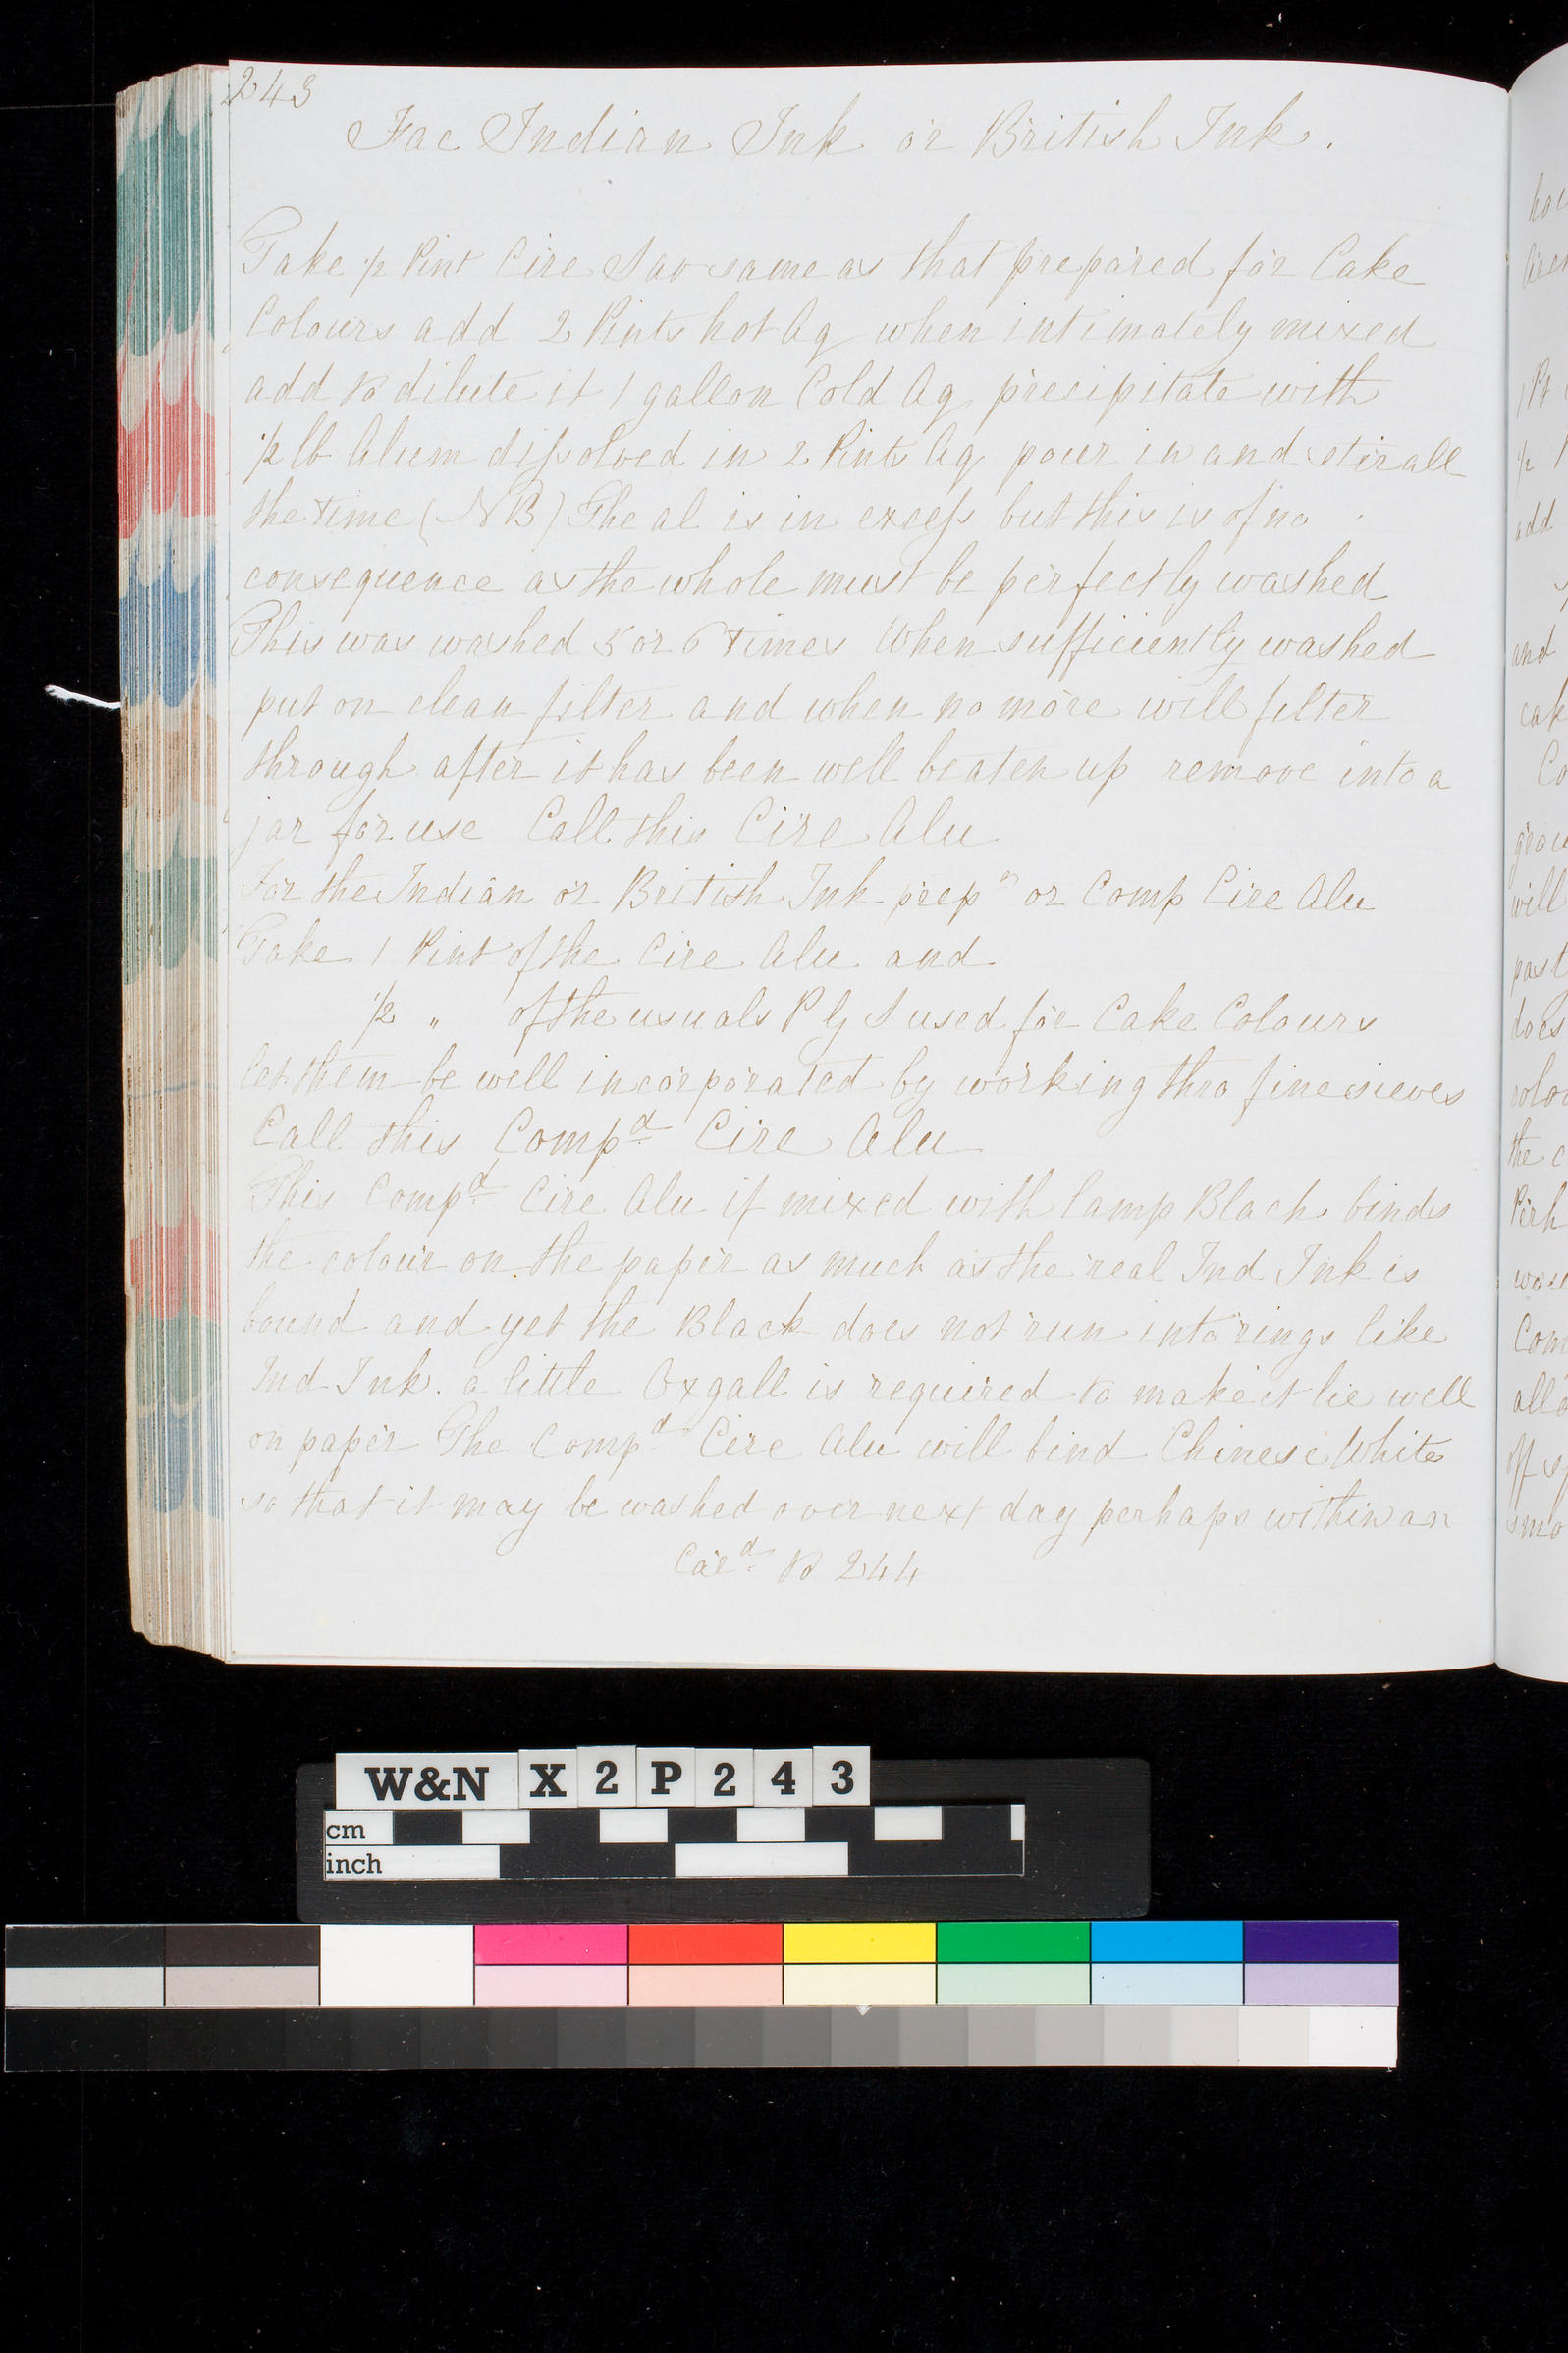 243
Fac Indian Ink or British Ink.
Take ½ Pint Cire Sav same as that prepared for Cake
Colours add 2 Pints hot Aq when intimately mixed
add to dilute it 1 gallon Cold Aq precipitate with
½ lb Alum dissolved in 2 Pints Aq pour in and stir all
the time (NB) The al is in excess but this is of no
consequence as the whole must be perfectly washed
This was washed 5 or 6 times When sufficiently washed
put on clean filter and when no more will filter
through after it has been well beaten up remove into a
jar for use Call this Cire Alu
For the Indian or British Ink prepn or Comp Cire Alu
Take 1 Pint of the Cire Alu and
½ " of the usuals P Gj S used for Cake Colours
let them be well incorporated by working thro fine sieves
Call this Compd Cire Alu
This Compd Cire Alu if mixed with lamp Black binds
the colour on the paper as much as the real Ind Ink is
bound and yet the Black does not run into rings like
Ind Ink. a little Oxgall is required to make it lie well
on paper The Compd Cire Alu will bind Chinese White
so that it may be washed over next day perhaps within an
Card to 244
hot
1 Pt
½ 1
add
and
cak
Co
grou
will
past
does
colou
the c
Perh
Com
allo
off
smo
W&N X 2 P 2 4 3
cm
inch